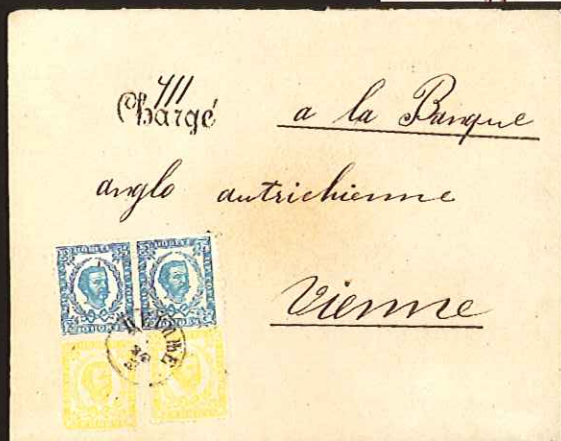 411
Chargé
a la Banque
anglo autrichienne
Vienne